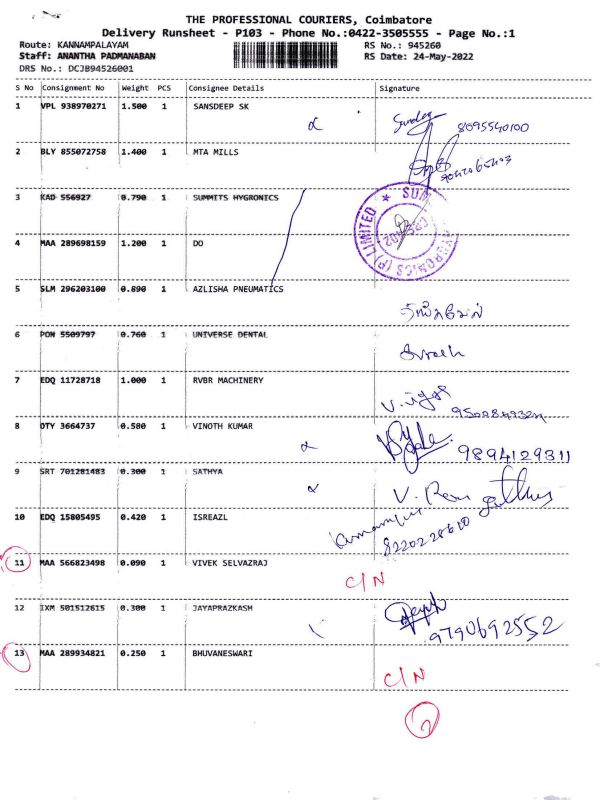 THE PROFESSIONAL COURIERS, Coimbatore
Delivery Runsheet - P103 - Phone No.:0422-3505555 - Page No.:1
Route: KANNAMPALAYAM RS No.: 945260
Staff: ANANTHA PADMANABAN RS Date: 24-May-2022
DRS No.: DCJB94526001
S No Consignment No Weight PCS Consignee Details Signature
1 VPL 938970271 1.500 1 SANSDEEP SK
8095540100
2 BLY 855072758 1.400 1 MTA MILLS
3 KAD 556927 0.790 1 SUMMITS HYGRONICS
4 MAA 289698159 1.200 1 DO
5 SLM 296203100 0.890 1 AZLISHA PNEUMATICS
6 PON 5509797 0.760 1 UNIVERSE DENTAL
7 EDQ 11728718 1.000 1 RVBR MACHINERY
8 OTY 3664737 0.580 1 VINOTH KUMAR
9894129311
9 SRT 701281483 0.300 1 SATHYA
10 EDQ 15805495 0.420 1 ISREAZL
8220228610
11 MAA 566823498 0.090 1 VIVEK SELVAZRAJ
C/N
12 IXM 501512615 0.300 1 JAYAPRAZKASH
9790692552
13 MAA 289934821 0.250 1 BHUVANESWARI
C/N
2